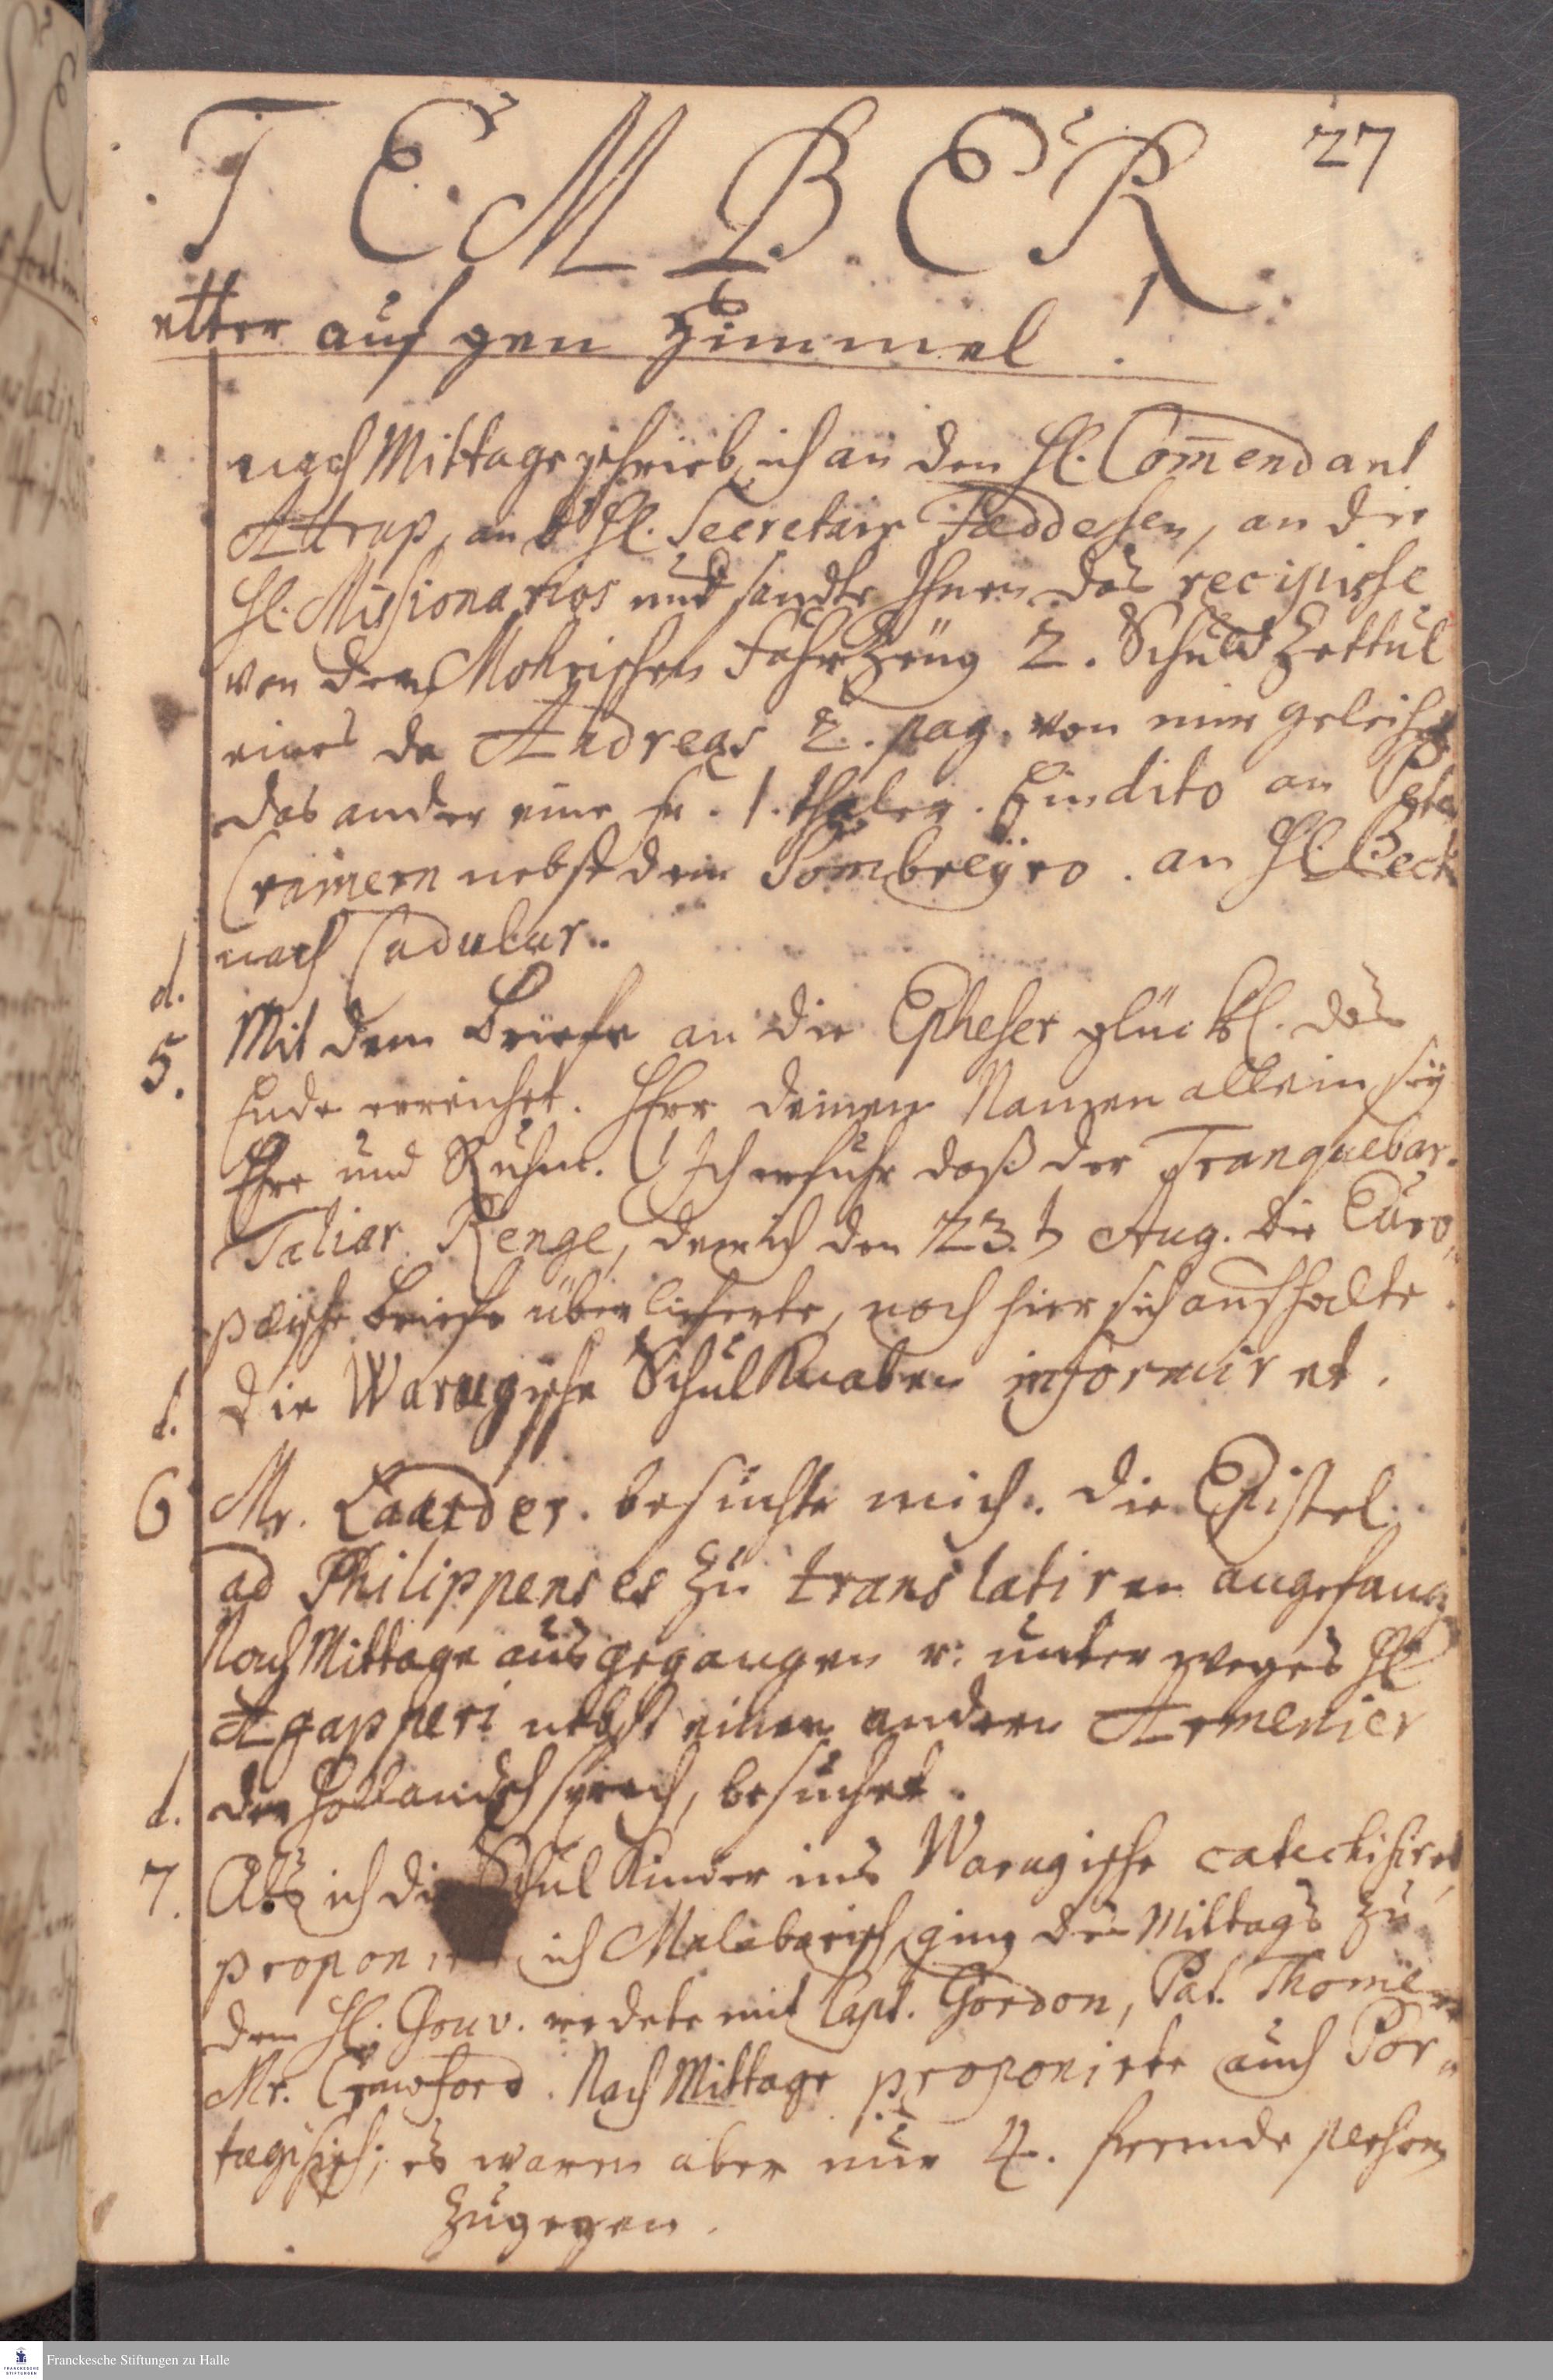 27
T E M B E R.
etter auf gen Himmel.
nach Mittage schrieb ich an den H. Com̄endant
Attrup, an H. Secretair Fæddersen, an die
H. Missionarios und sandte Ihnen das recipisse
von dem Mohrischen FahrZeug 2. Schuld Zettul
eines da Andreas 2. pag. von mir geleihet
das andere eine fr. 1. thaler. Ein dito an
Cramern nebst dem Sombreÿro. an H. Beck
nach Cadulur.
d. 5. Mit dem Briefe an die Epheser glückl. das
Ende erreichet. HErr deinem Namen allein seÿ
Ehre und Ruhm. Ich erfuhr daß der Tranquebar.
Taliar Renge, dem ich den 23.t Aug. die Euro,,
pæische Briefe überlieferte, noch hier sich aufhalte.
die Warugische SchulKnaben informiret.
d. 6 Mr. besuchte mich. die Epistel
ad Philippenses zu translatiren angefang
Nach Mittage ausgegangen v. unterweges H
Agapperi nebst einen andern Armenier
der Hollandisch sprach, besuchet.
d. 7. Als ich die Schul Kinder ins Warugische catechisiret,
ich Malabarisch, ging des Mittags zu
dem H. Gouv. redete mit Capt. Gordon, Pat. Thomé
Mr. Crawford. Nach Mittage proponirte auch Por,,
tugisisch; es waren aber nur 4. fremde person
zugegen.
Franckesche Stiftungen zu Halle